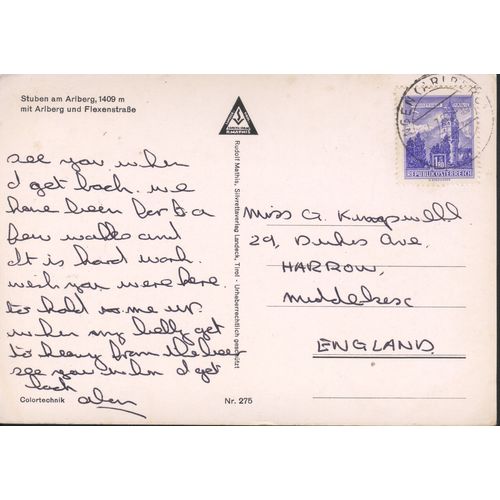 Stuben am Arlberg, 1409 m
mit Arlberg und Flexenstraße
see you when
I get back. we
have been for a
few walks and
It is hard work.
wish you were here.
to hold me up.
when my belly get
to heavy from the beer
see you when I get
back
alan
Colortechnik
Nr. 275
Rudolf Mathis, Silvrettaverlag Landeck, Tirol - Urheberrechtlich geschützt
REPUBLIK ÖSTERREICH
Miss G.
29, Dukes Ave,
HARROW,
Middlesex
ENGLAND.